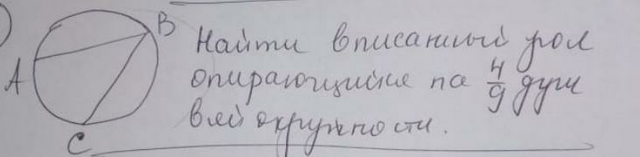 B
A
C
Найти вписанный угол
опирающийся на 4/9 дуги
всей окружности.